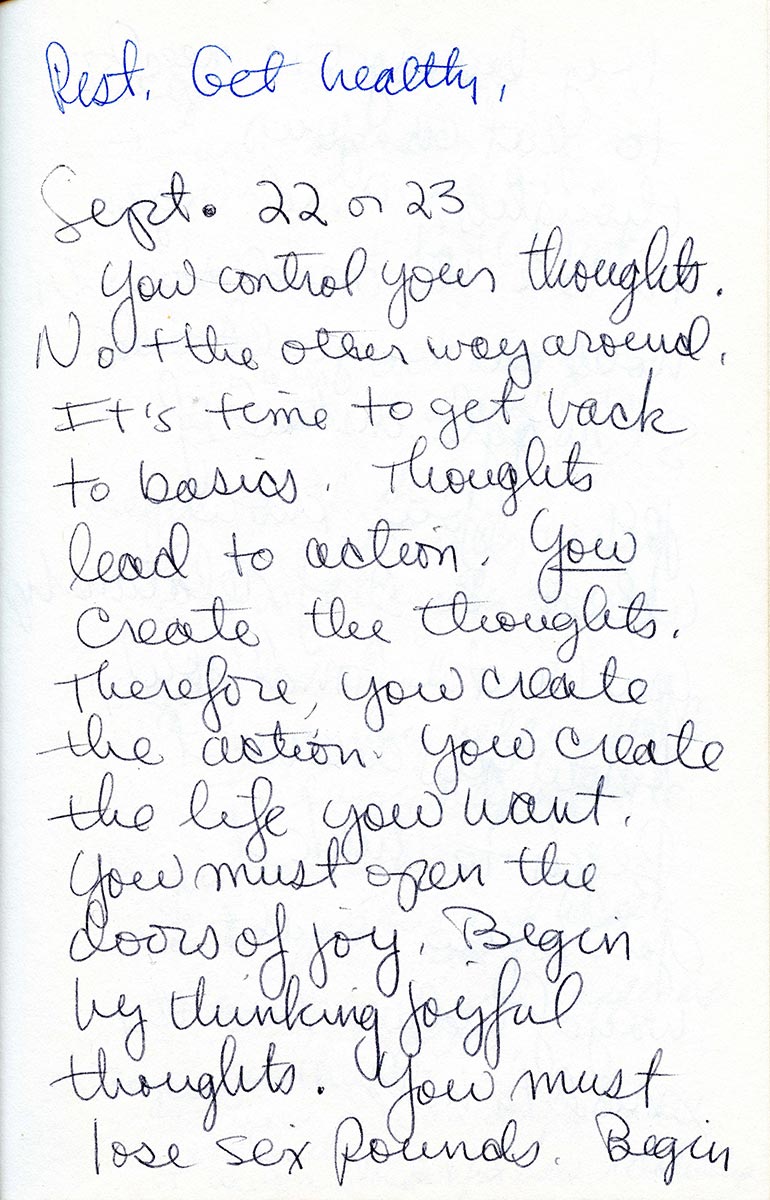 Rest. Get healthy.
Sept. 22 or 23
You control your thoughts.
Not the other way around.
It's time to get back
to basics. Thoughts
lead to action. You
create the thoughts.
Therefore, you create
the action. You create
the life you want.
You must open the
doors of joy. Begin
by thinking joyful
thoughts. You must
lose six pounds. Begin